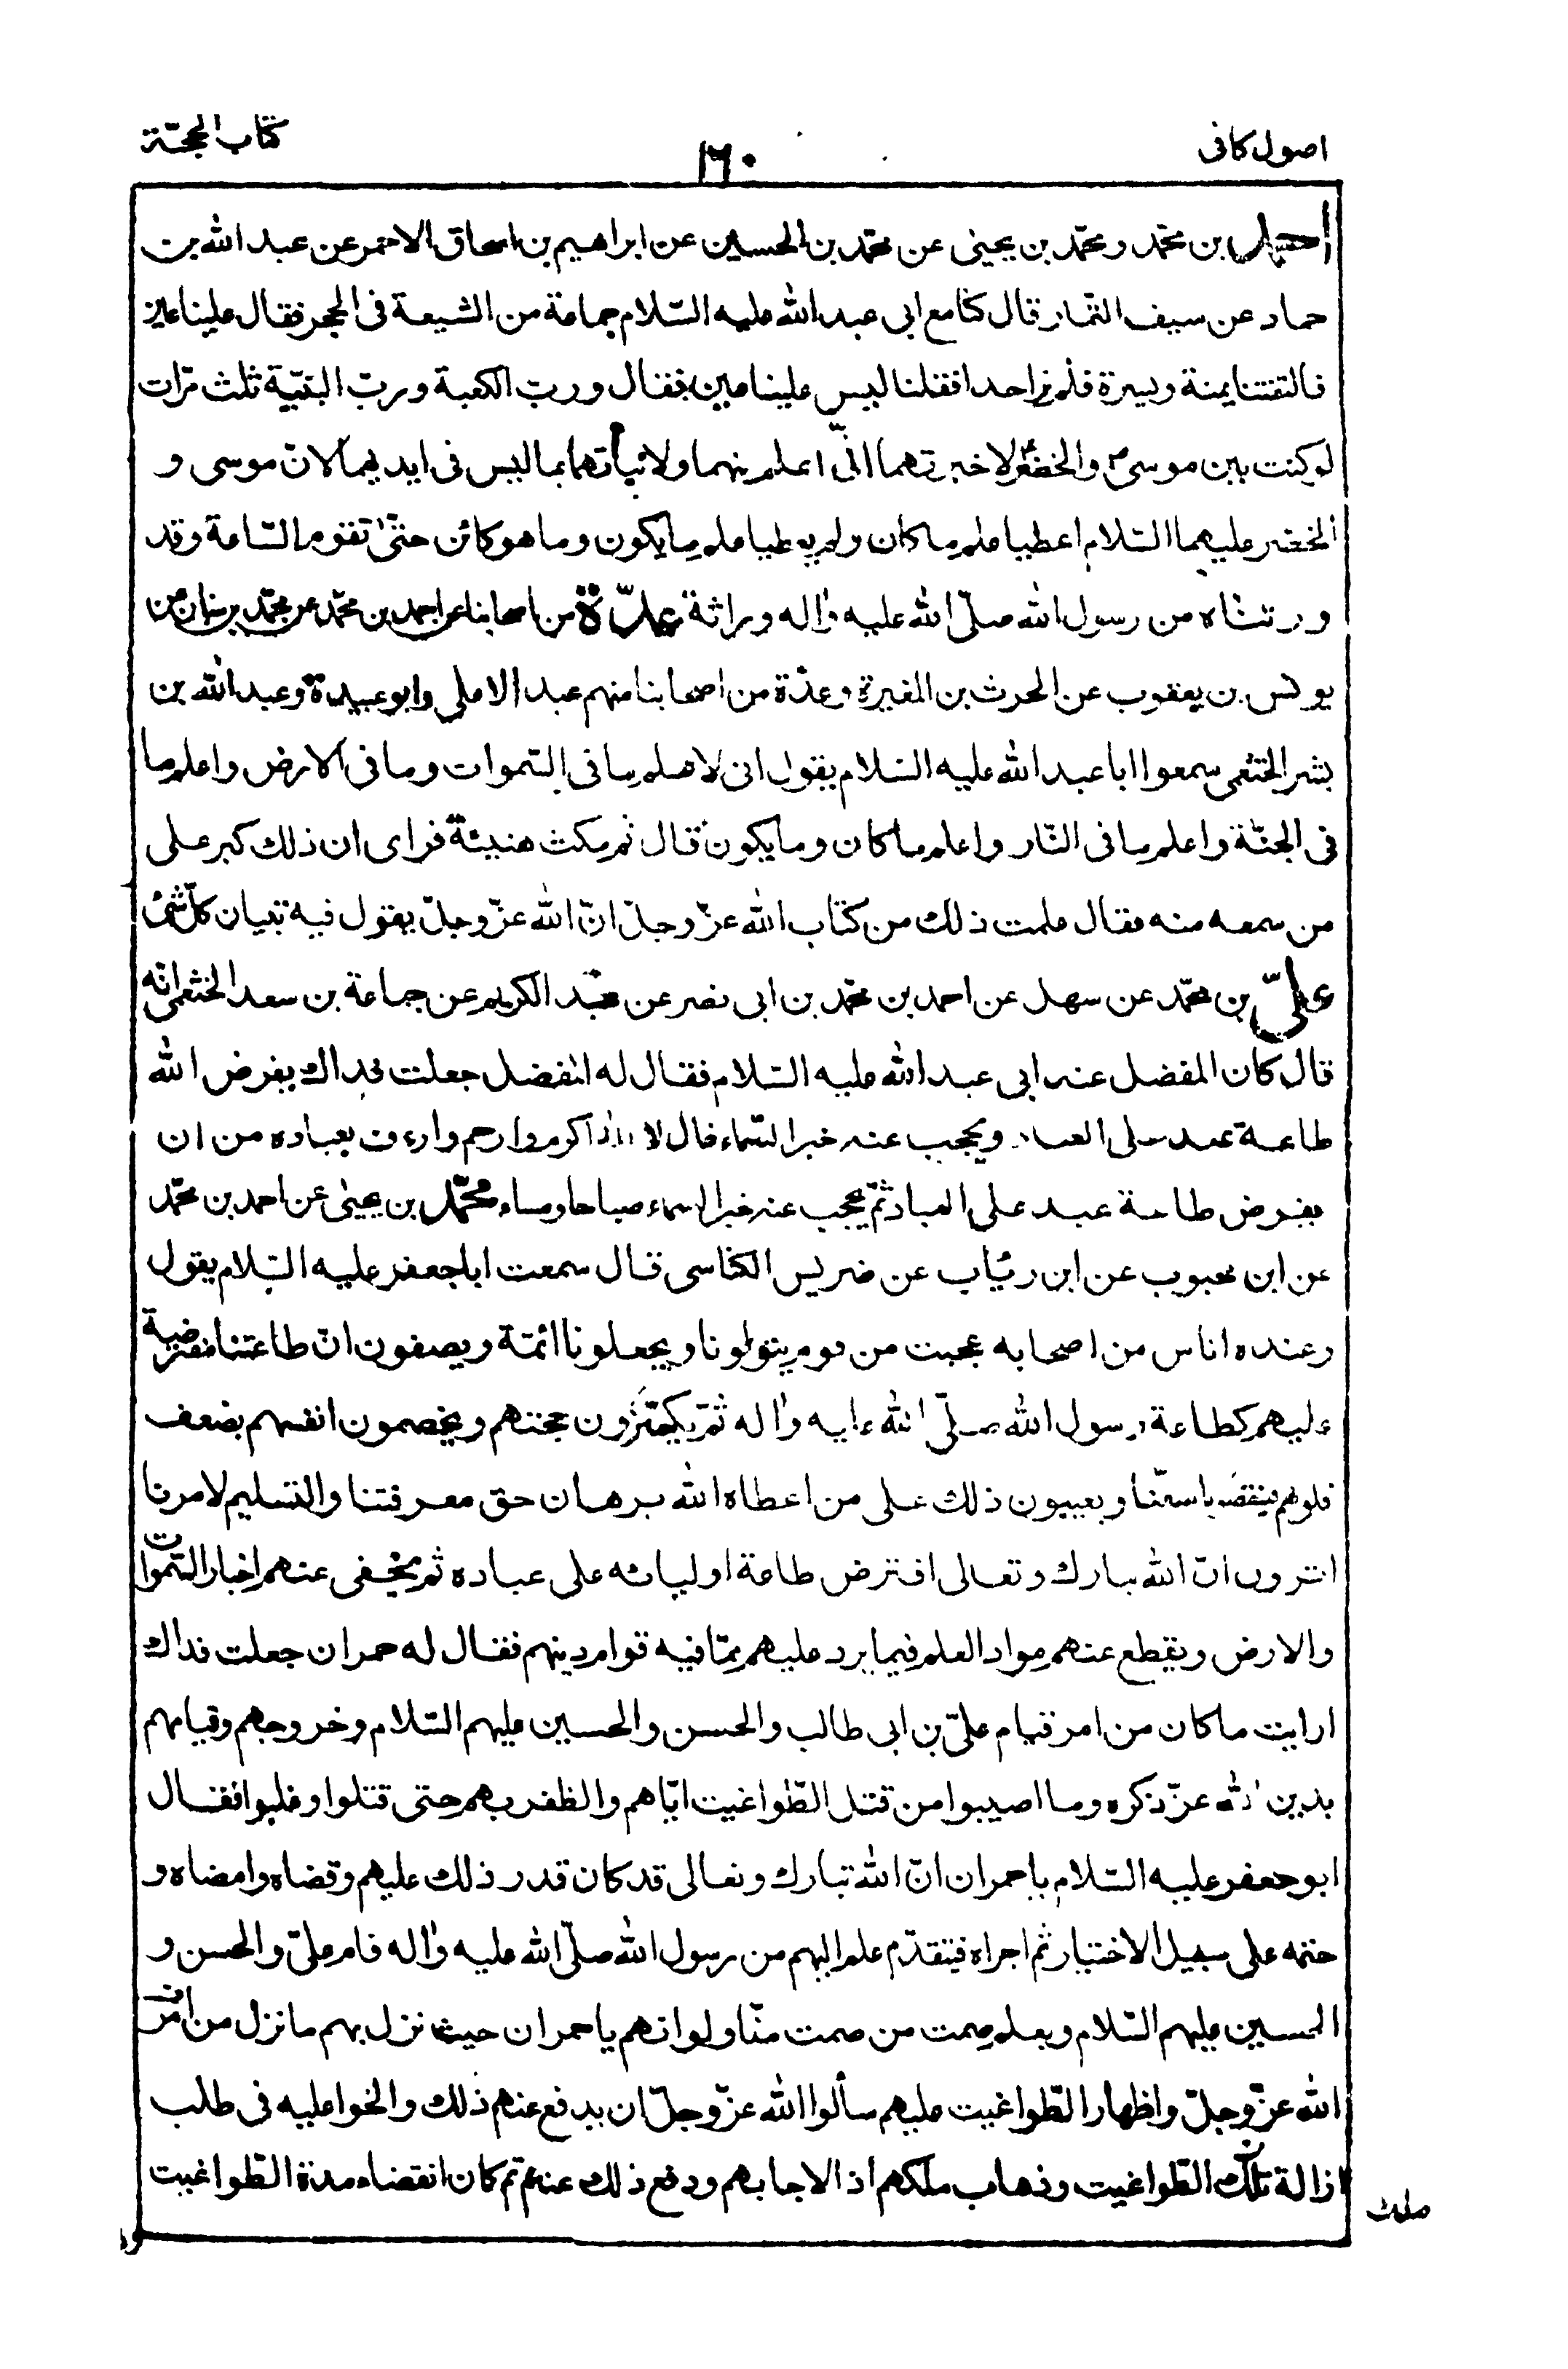 اصول كافى
١٦٠
كتاب الحجّة
احمد بن محمّد ومحمّد بن يحيى عن محمّد بن الحسين عن ابراهيم بن اسحاق الاحمر عن عبد الله بن
حماد عن سيف التمّار قال كنّا مع ابى عبد الله عليه السّلام جماعة من الشيعة فى الحجر فقال علينا عين
فالتفتنا يمنة ويسرة فلم نر احدا فقلنا ليس علينا عين فقال وربّ الكعبة وربّ البنيّة ثلث مرّات
لو كنت بين موسى والخضر لاخبرتهما انّى اعلم منهما ولانبأتهما بما ليس فى ايديهما لانّ موسى و
الخضر عليهما السّلام اعطيا علم ما كان ولم يعطيا علم ما يكون وما هو كائن حتّى تقوم السّاعة وقد
ورثناه من رسول الله صلّى الله عليه واله وراثة عدّة من اصحابنا عن احمد بن محمّد عن محمّد بن سنان عن
يونس بن يعقوب عن الحرث بن المغيرة وعدّة من اصحابنا منهم عبد الاعلى وابو عبيدة وعبد الله بن
بشر الخثعمى سمعوا ابا عبد الله عليه السّلام يقول انى لاعلم ما فى السّموات وما فى الارض واعلم ما
فى الجنّة واعلم ما فى النّار واعلم ما كان وما يكون قال ثم مكث هنيئة فراى ان ذلك كبر على
من سمعه منه فقال علمت ذلك من كتاب الله عزّ وجلّ انّ الله عزّ وجلّ يقول فيه تبيان كلّ شئ
علىّ بن محمّد عن سهل عن احمد بن محمّد بن ابى نصر عن عبد الكريم عن جماعة بن سعد الخثعمى انّه
قال كان المفضل عند ابى عبد الله عليه السّلام فقال له المفضل جعلت فداك يفرض الله
طاعة عبد على العباد ويحجب عنه خبر السّماء قال لا الله اكرم وارحم وارءف بعباده من ان
يفرض طاعة عبد على العباد ثمّ يحجب عنه خبر السماء صباحا ومساء محمّد بن يحيى عن احمد بن محمّد
عن ابن محبوب عن ابن رئاب عن ضريس الكناسى قال سمعت ابا جعفر عليه السّلام يقول
وعنده اناس من اصحابه عجبت من قوم يتولونا ويجعلونا ائمّة ويصفون انّ طاعتنا مفترضة
عليهم كطاعة رسول الله صلّى الله عليه واله ثمّ يكسرون حجتهم ويخصمون انفسهم بضعف
قلوبهم فينقصونا حقّنا ويعيبون ذلك على من اعطاه الله برهان حق معرفتنا والتسليم لامرنا
اترون انّ الله تبارك وتعالى افترض طاعة اوليائه على عباده ثم يخفى عنهم اخبار السّموات
والارض ويقطع عنهم مواد العلم فيما يرد عليهم ممّا فيه قوام دينهم فقال له حمران جعلت فداك
ارايت ما كان من امر قيام علىّ بن ابى طالب والحسن والحسين عليهم السّلام وخروجهم وقيامهم
بدين الله عزّ ذكره وما اصيبوا من قتل الطّواغيت ايّاهم والظفر بهم حتى قتلوا وغلبوا فقال
ابو جعفر عليه السّلام يا حمران انّ الله تبارك وتعالى قد كان قدر ذلك عليهم وقضاه وامضاه و
حتمه على سبيل الاختيار ثم اجراه فبتقدّم علم اليهم من رسول الله صلّى الله عليه واله قام علىّ والحسن و
الحسين عليهم السّلام وبعلم صمت من صمت منّا ولو انهم يا حمران حيث نزل بهم ما نزل من امر
الله عزّ وجلّ واظهار الطّواغيت عليهم سألوا الله عزّ وجلّ ان يدفع عنهم ذلك والحّوا عليه فى طلب
ازالة تلك الطّواغيت وذهاب ملكهم اذا لاجابهم ودفع ذلك عنهم ثم كان انقضاء مدة الطّواغيت
ملك